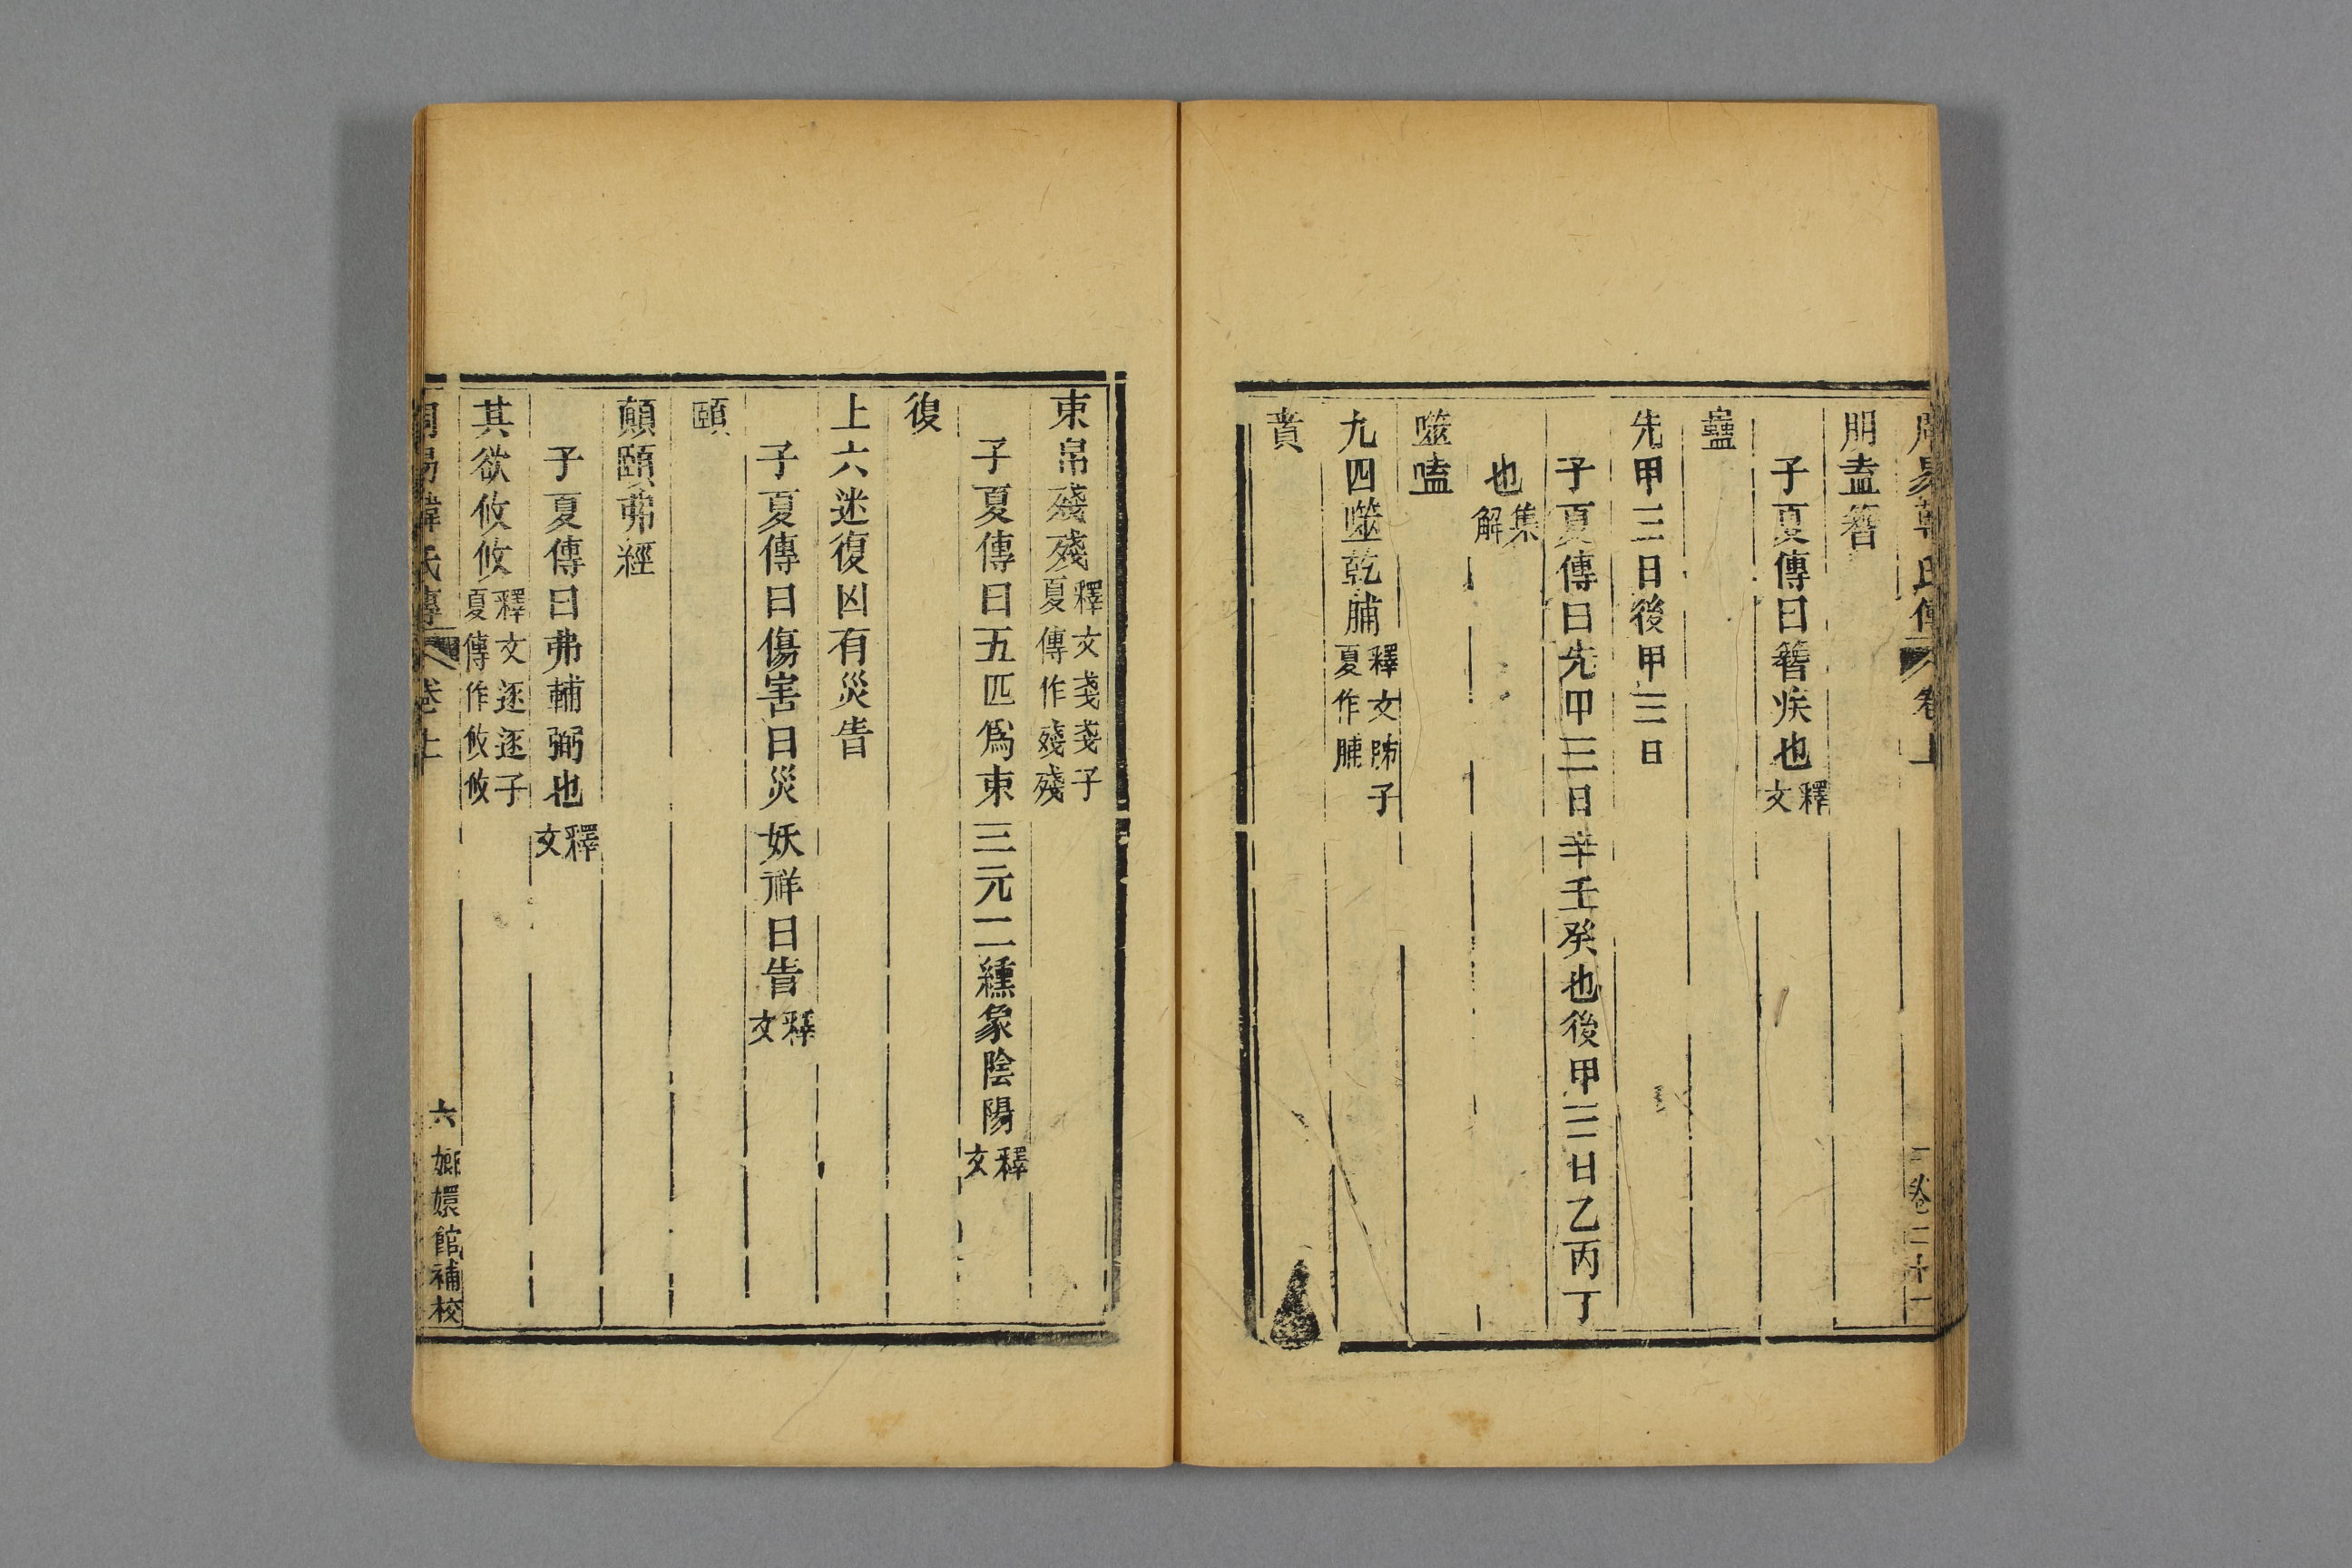 周易韓氏傳 卷上
二 卷二十一
朋盍簪
子夏傳曰簪疾也釋文
蠱
先甲三日後甲三日
子夏傳曰先甲三日辛壬癸也後甲三日乙丙丁
也集解
噬嗑
九四噬乾脯釋文胏子夏作脯
賁
束帛殘殘釋文戔戔子夏傳作殘殘
子夏傳曰五匹爲束三元二纁象陰陽釋文
復
上六迷復凶有災眚
子夏傳曰傷害曰災妖祥曰眚釋文
頤
顛頤弗經
子夏傳曰弗輔弼也釋文
其欲攸攸釋文逐逐子夏傳作攸攸
周易韓氏傳 卷上 六 嫏嬛館補校